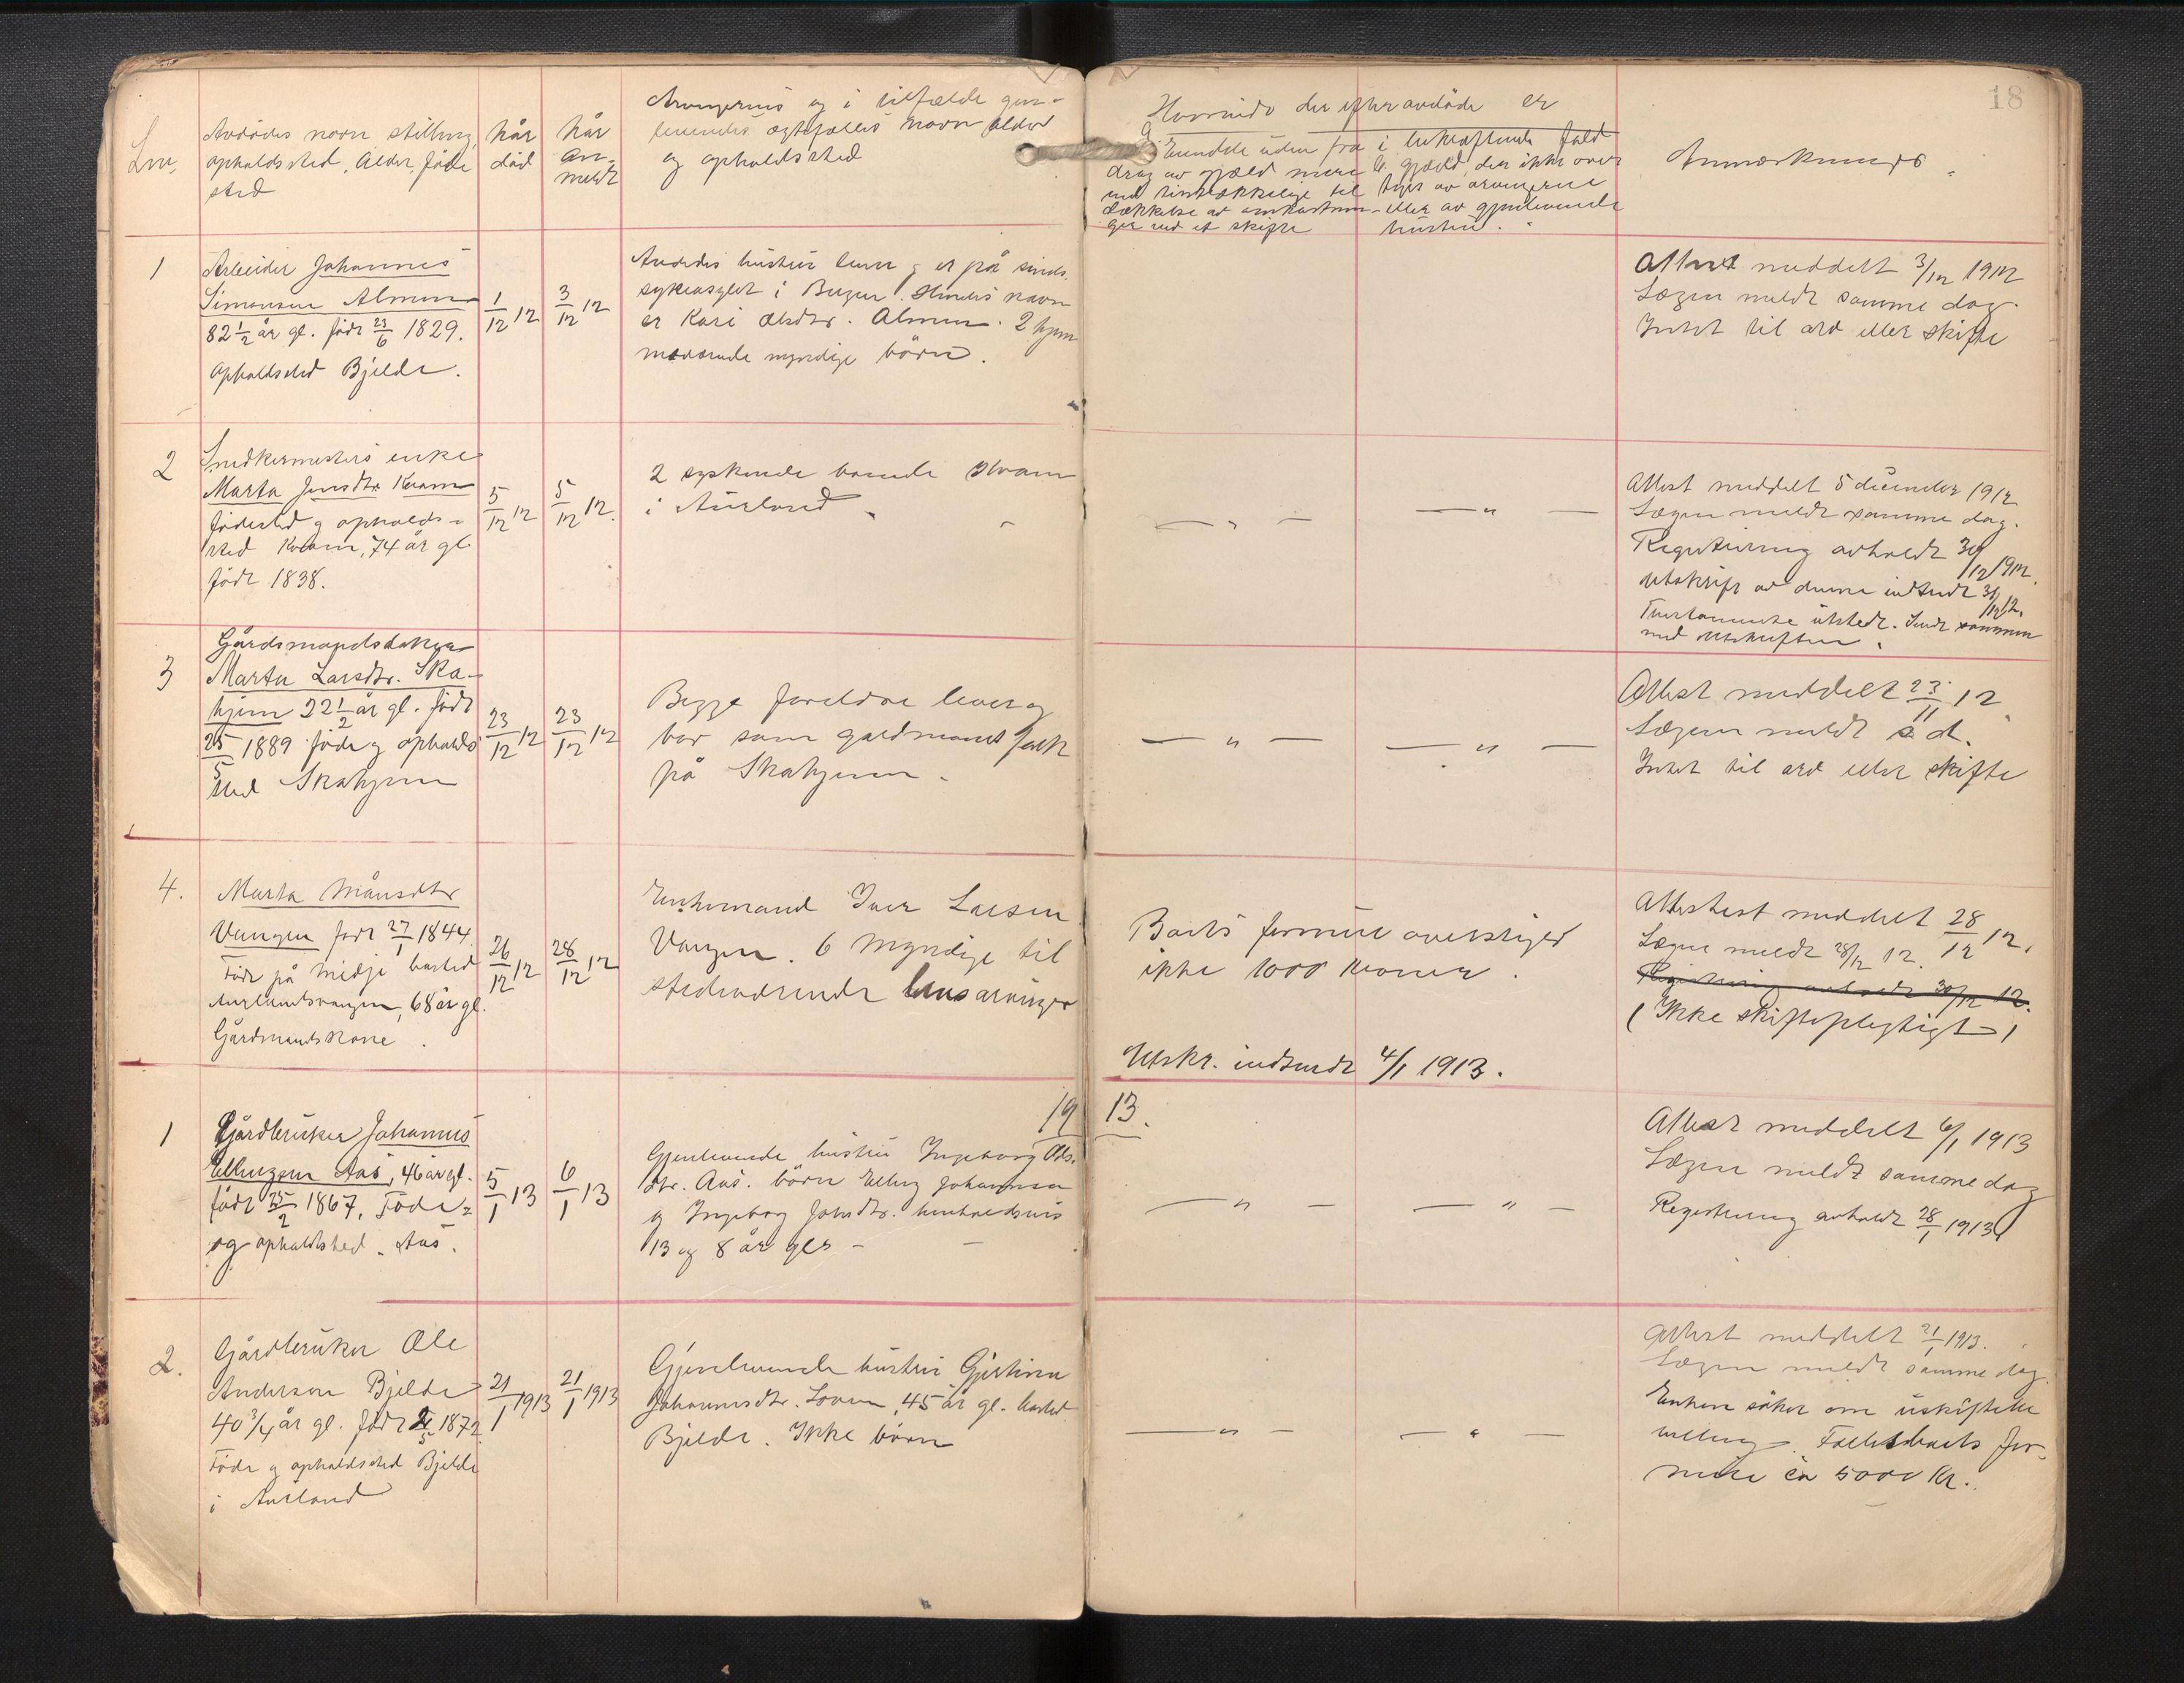 18
Lnr.
Avdødes navn stilling,
opholdssted, Alder, føde
sted
når
død
når
an-
meldt
Arvingernes og i tilfælde gjen-
levendes ægtefælles navn alder
og opholdssted
Hvorvidt der efter avdøde er
Anmerkninger
dækkelse av omkostnin-
ger ved et skifte
eller av gjenlevende
hustru.
1
Arbeider Johannes
Simonsen Almen
82 1/2 år gl. født 23/6 1829.
Opholdssted Bjelde.
1/12 12
3/12 12
Avdødes hustru lever og er på sinds
sykeasylet i Bergen. Hendes navn
er Kari Olsdtr. Almen. 2 hjem
meværende myndige börn.
Attest meddelt 3/12 1912
Lægen meldt samme dag.
Intet til arv eller skifte
2
Snedkermesters enke
Marta Jensdtr. Kvam
födested og opholds-
sted Kvam, 74 år gl.
født 1838.
5/12 12
5/12 12.
2 syskende boende Kvam
i Aurland.
— " —
— " —
Attest meddelt 5 december 1912
Lægen meldt samme dag.
Registrering avholdt 30/12 1912.
Utskrift av denne indsendt 31/12 12.
med utskriften.
3
Gårdsmandsdatter
Marta Larsdtr. Ska-
hjem 22 1/2 år gl. født
25/5 1889 föde og opholds
sted Skahjem
23/12 12
23/12 12
Begge foreldre lever og
bor som gardmands folk
på Skahjem.
— " —
— " —
Attest meddelt 23/11 12
Lægen meldt s. d.
Intet til arv eller skifte
4.
Marta Månsdtr
Vangen født 27/1 1844.
Født på Midje bosted
Aurlandsvangen, 68 år gl.
Gårdmandskone.
26/12 12
28/12 12
Enkemand Iver Larsen
Vangen. 6 myndige til
stedeværende livsarvinger
Boets formue overstiger
ikke 1000 kroner.
Utskr. indsendt 4/1 1913.
Attestest meddelt 28/12 12.
Lægen meldt 28/12 12.
Registrering avholdt 30/12 12.
(Ikke skiftepligtigt)
1913.
1
Gårdbruker Johannes
Ellingsen Aas, 46 år gl.
født 25/2 1867. Föde-
og opholdssted. Aas.
5/1 13
6/1 13
Gjenlevende hustru Ingeborg Ols.
dtr. Aas. börn Elling Johannesen
og Ingeborg Johsdtr. henholdsvis
13 og 8 år gle —
— " —
— " —
Attest meddelt 6/1 1913
Lægen meldt samme dag
Registrering avholdt 28/1 1913
2.
Gårdbruker Ole
Anderson Bjelde
40 3/4 år gl. født 1872
Föde og opholdssted Bjelde
i Aurland
21/1 1913
21/1 1913
Gjenlevende hustru Gjertina
Johannesdtr. 45 år gl. bosted
Bjelde. Ikke börn
— " —
— " —
Attest meddelt 21/1 1913.
Lægen meldt samme dag.
Enken söker om uskiftede
Fællesboets for-
mue ca 5000 kr.